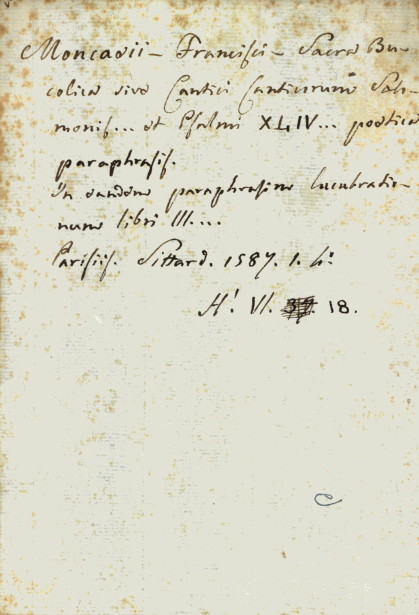 Moncadii - Francisci - Sacra Bu-
colica sive Cantici Canticorum Salo-
monis... et Psalmi XLIV... poetica
paraphrasis.
In eandem paraphrasim lucubratio-
num libri III....
Parisiis. Sittard. 1587. 1. h:
H! VI. 18.